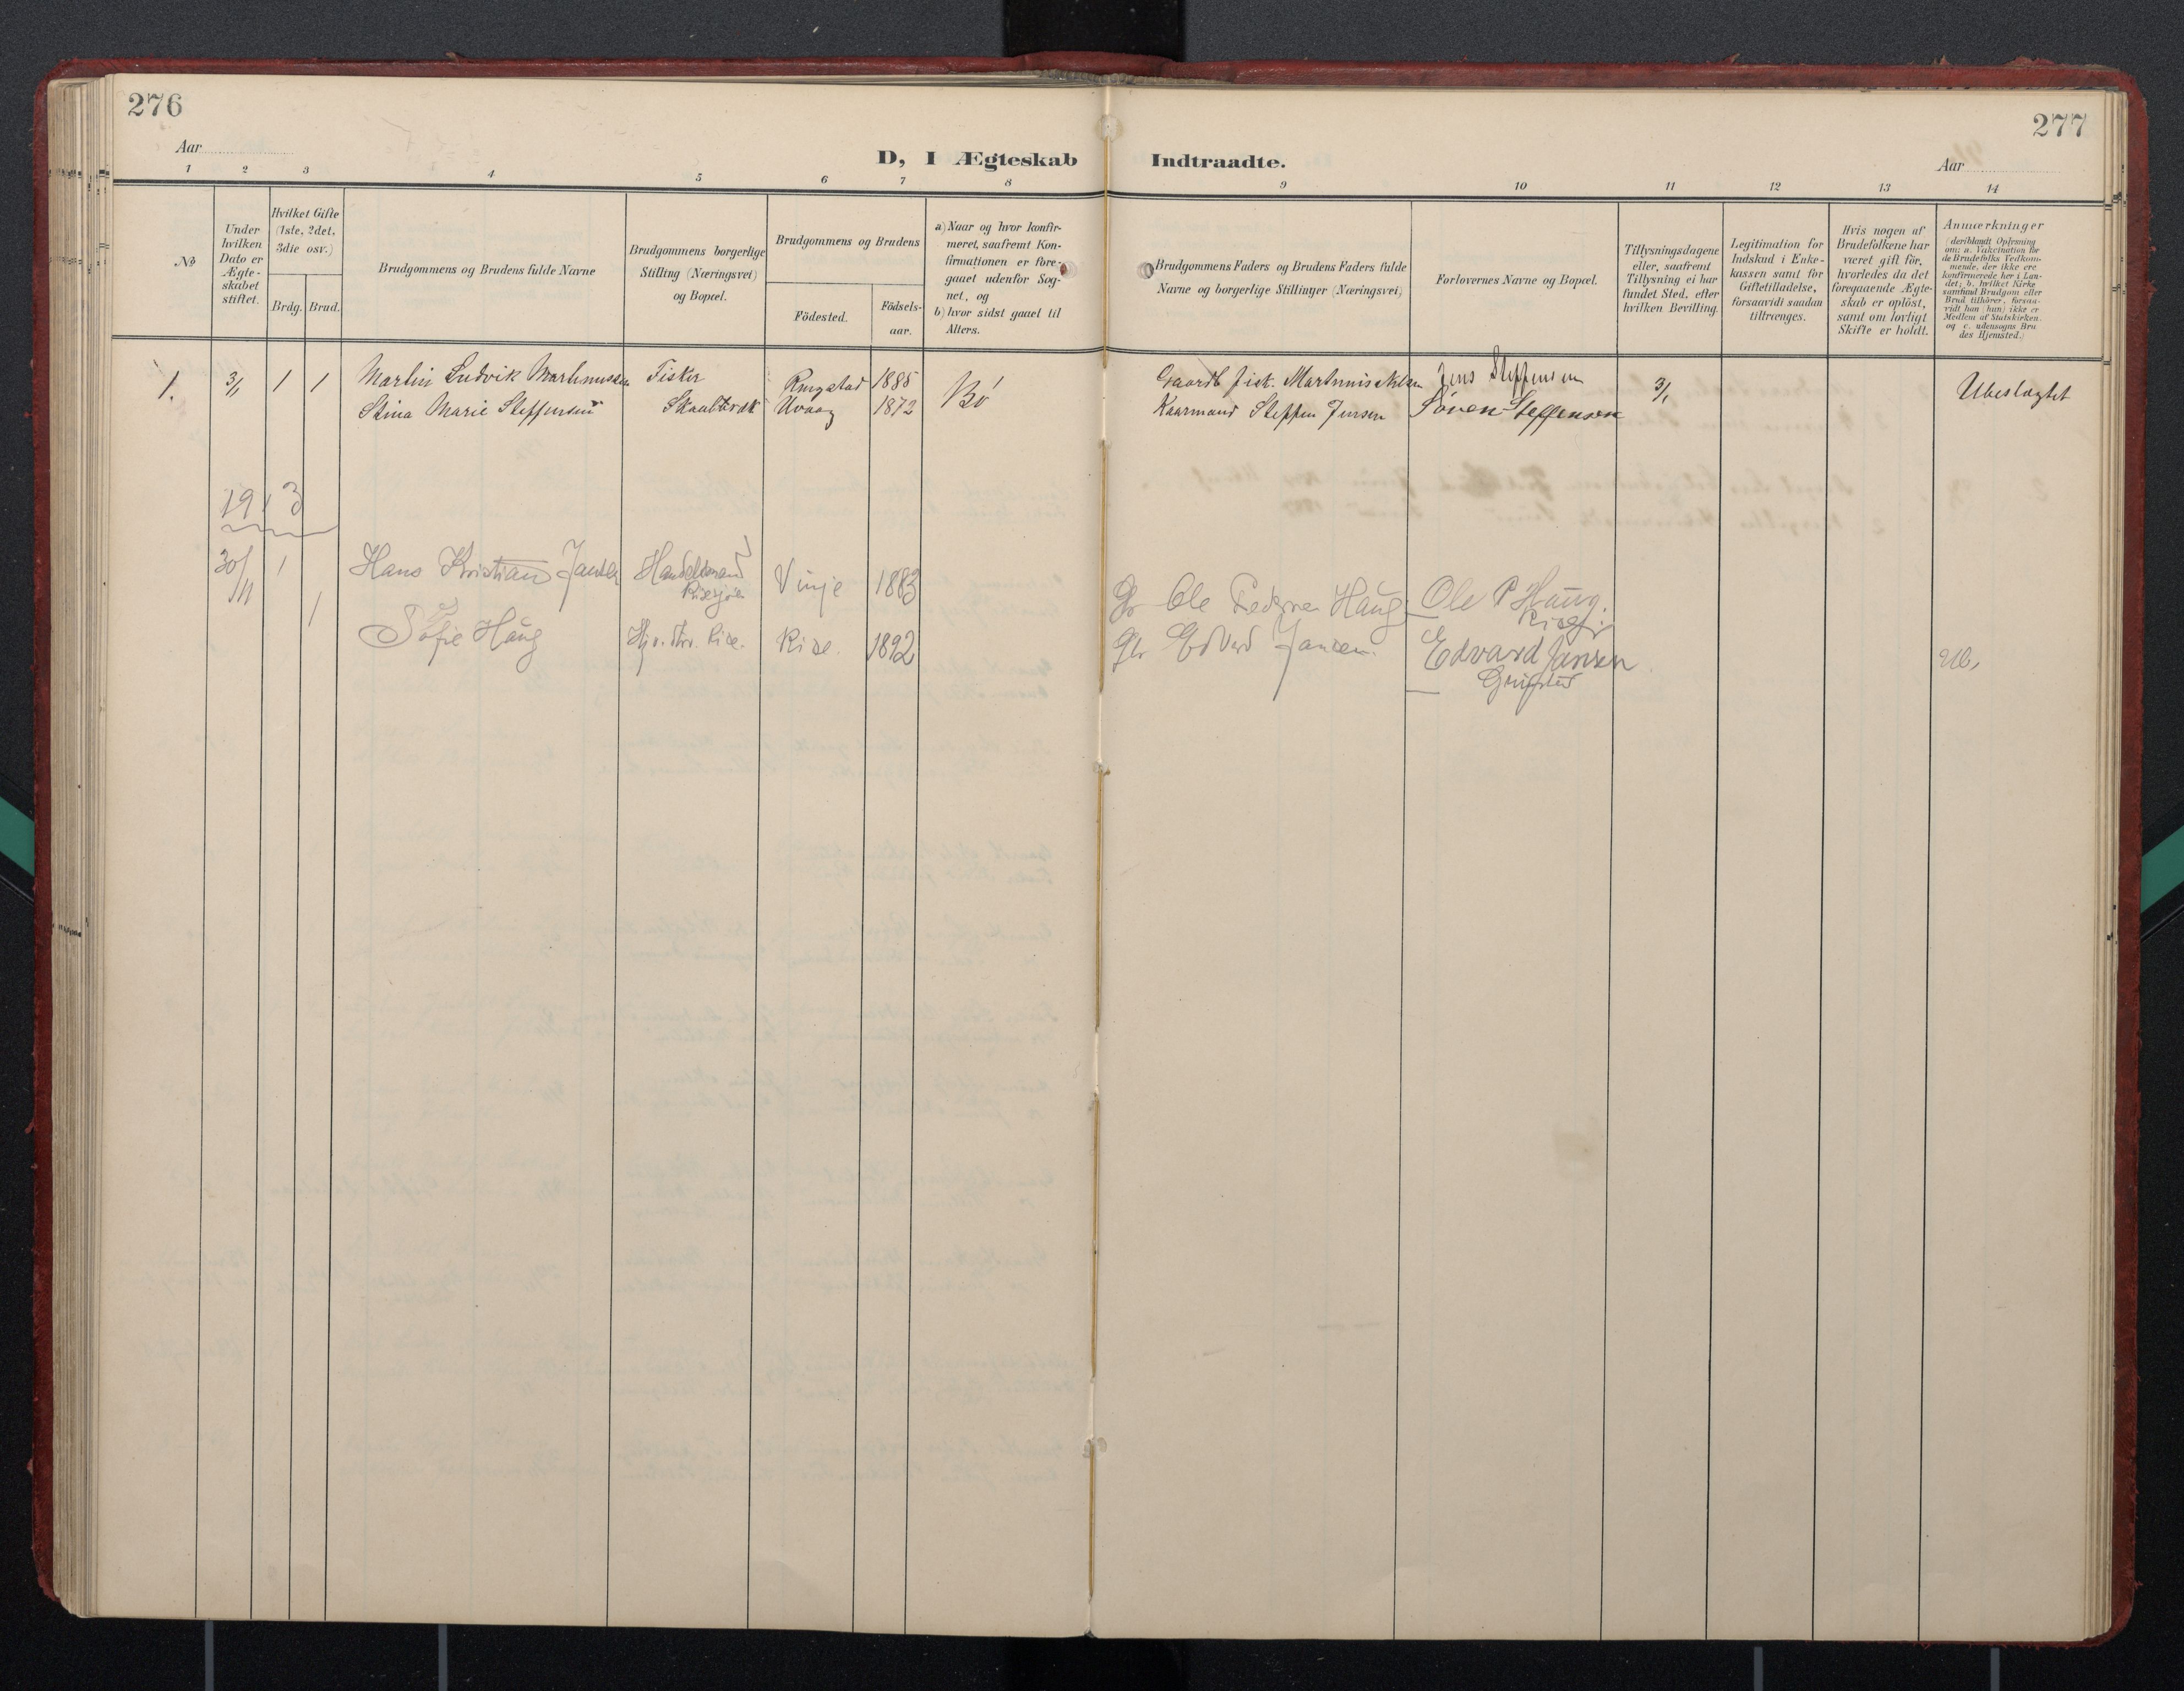 276
Aar
D, I Ægteskab
1 2 3 4 5 6 7 8
№
Under hvilken Dato er Ægte-skabet stiftet.
Hvilket Gifte (1ste, 2det, 3die osv.)
Brdg. Brud.
Brudgommens og Brudens fulde Navne
Brudgommens borgerlige Stilling (Næringsvei) og Bopæl.
Brudgommens og Brudens
Födested.
Födsels-aar.
a) Naar og hvor konfir-
meret, saafremt Kon-
firmationen er fore-
gaaet udenfor Sog-
net, og
b) hvor sidst gaaet til
Alters.
1. 3/1 1 1 Martin Ludvik Martinussen Fisker Ringstad 1885 Bö
Stina Marie Steffensen Skaabrek Uvaag 1872
1913
30/11 1 Hans Kristian Jansen Handelsmand Vinje 1883
Risesjøen
1 Sofie Haug Rise. Rise. 1892
277
Indtraadte.
Aar
9 10 11 12 13 14
Brudgommens Faders og Brudens Faders fulde
Navne og borgerlige Stillinger (Næringsvei)
Forlovernes Navne og Bopæl.
Tillysningsdagene
eller, saafremt
Tillysning ei har
fundet Sted, efter
hvilken Bevilling.
Legitimation for
Indskud i Enke-
kassen samt for
Giftetilladelse,
forsaavidt saadan
tiltrænges.
Hvis nogen af
Brudefolkene har
været gift för,
hvorledes da det
foregaaende Ægte-
skab er oplöst,
samt om lovligt
Skifte er holdt.
Anmærkninger
(deriblandt Oplysning
om: a. Vakcination for
de Brudefolks Vedkom-
mende, der ikke ere
konfirmerede her i Lan-
det; b. hvilket Kirke
samfund Brudgom eller
Brud tilhörer, forsaa-
vidt han (hun) ikke er
Medlem af Statskirken.
og c. udensogns Bru
des Hjemsted.)
Gaardb fisk. Martinus Jens Steffensen 3/1 Ubeslægtet
Kaarmand Steffen Jensen Sören Steffensen
Gbr Ole Pedersen Haug Ole P Haug.
Risesj
Gbr Edvard Jansen. Edvard Jansen Ub.
Grimstad